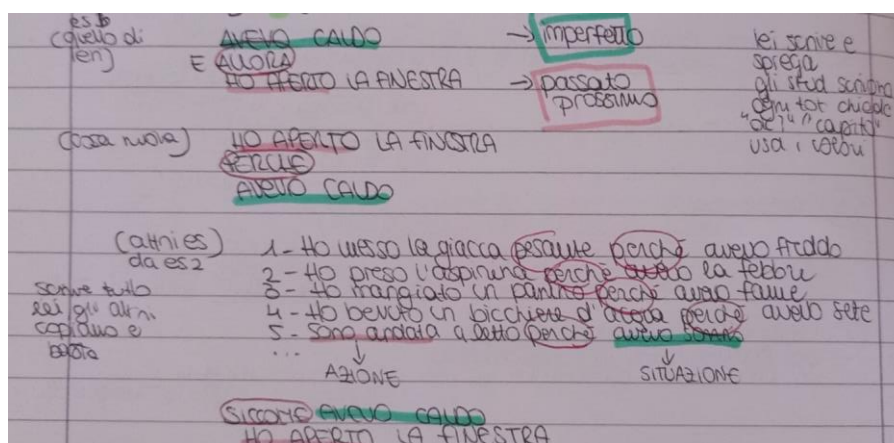 es b
(quello di
ieri)
AVEVO CALDO → imperfetto
E ALLORA
HO APERTO LA FINESTRA → passato
prossimo
lei scrive e
spiega
gli stud scrivono
ogni tot chiede
"ok?" "capito"
usa i colori
(cosa nuova) HO APERTO LA FINESTRA
PERCHÉ
AVEVO CALDO
(altri es)
da es 2
1 - Ho messo la giacca pesante perché avevo freddo
2 - Ho preso l'aspirina perché avevo la febbre
3 - Ho mangiato un panino perché avevo fame
4 - Ho bevuto un bicchiere d'acqua perché avevo sete
5 - Sono andata a letto perché avevo sonno
...
scrive tutto
lei gli altri
copiano e
basta
AZIONE SITUAZIONE
SICCOME AVEVO CALDO
HO APERTO LA FINESTRA